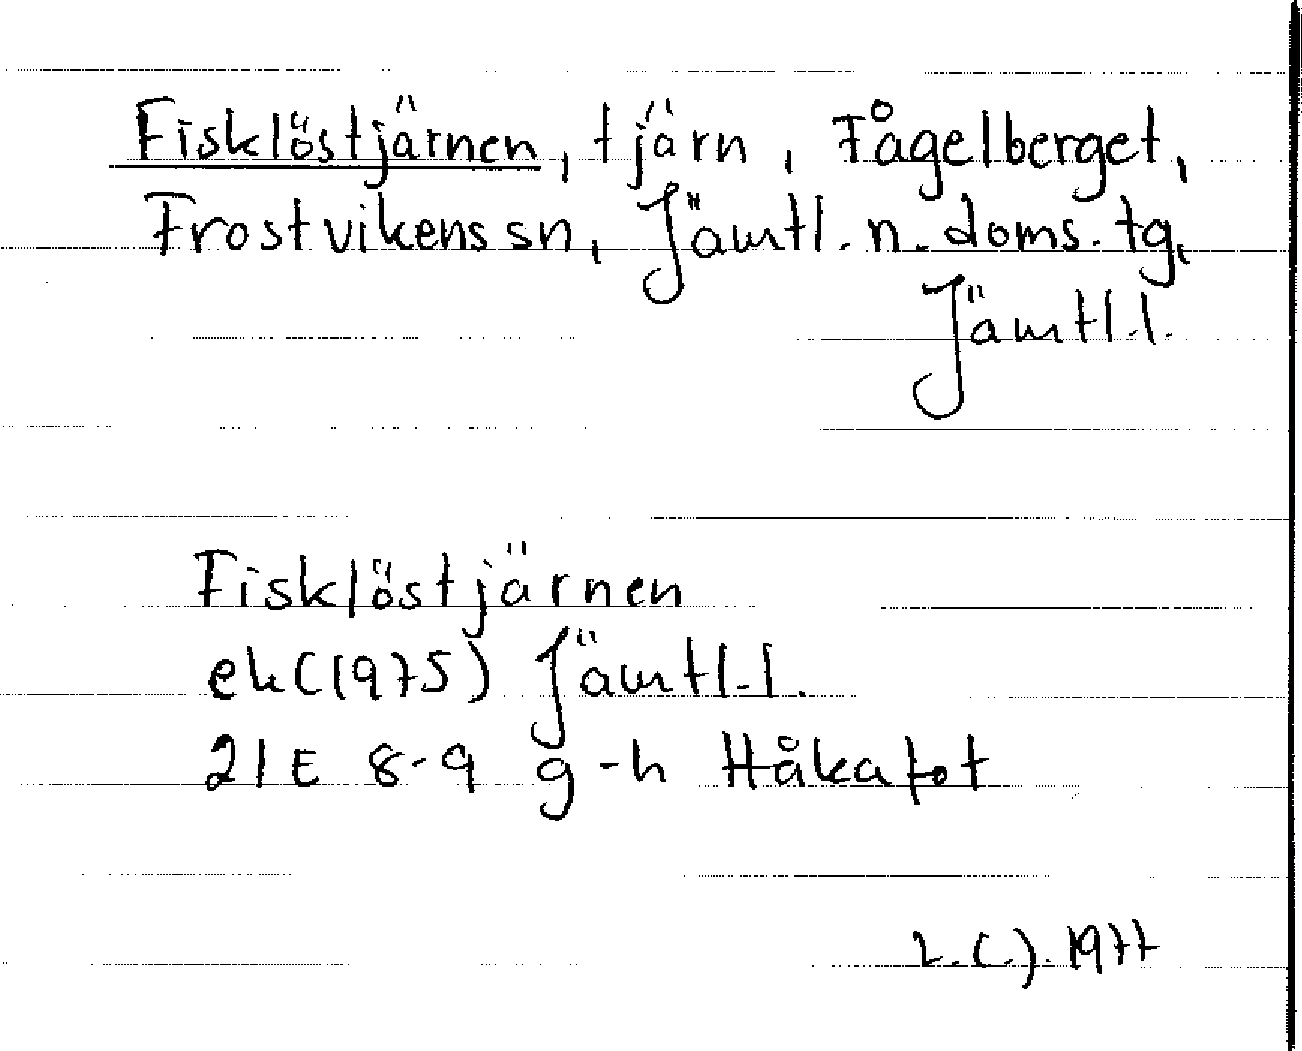 Fisklöstjärnen, tjärn, Fågelberget,
Frostvikens sn, Jämtl. n. doms. tg,
Jämtl.l.
Fisklöstjärnen
ek(1975) Jämtl.l.
21E 8-9 g-h Håkafot
1977